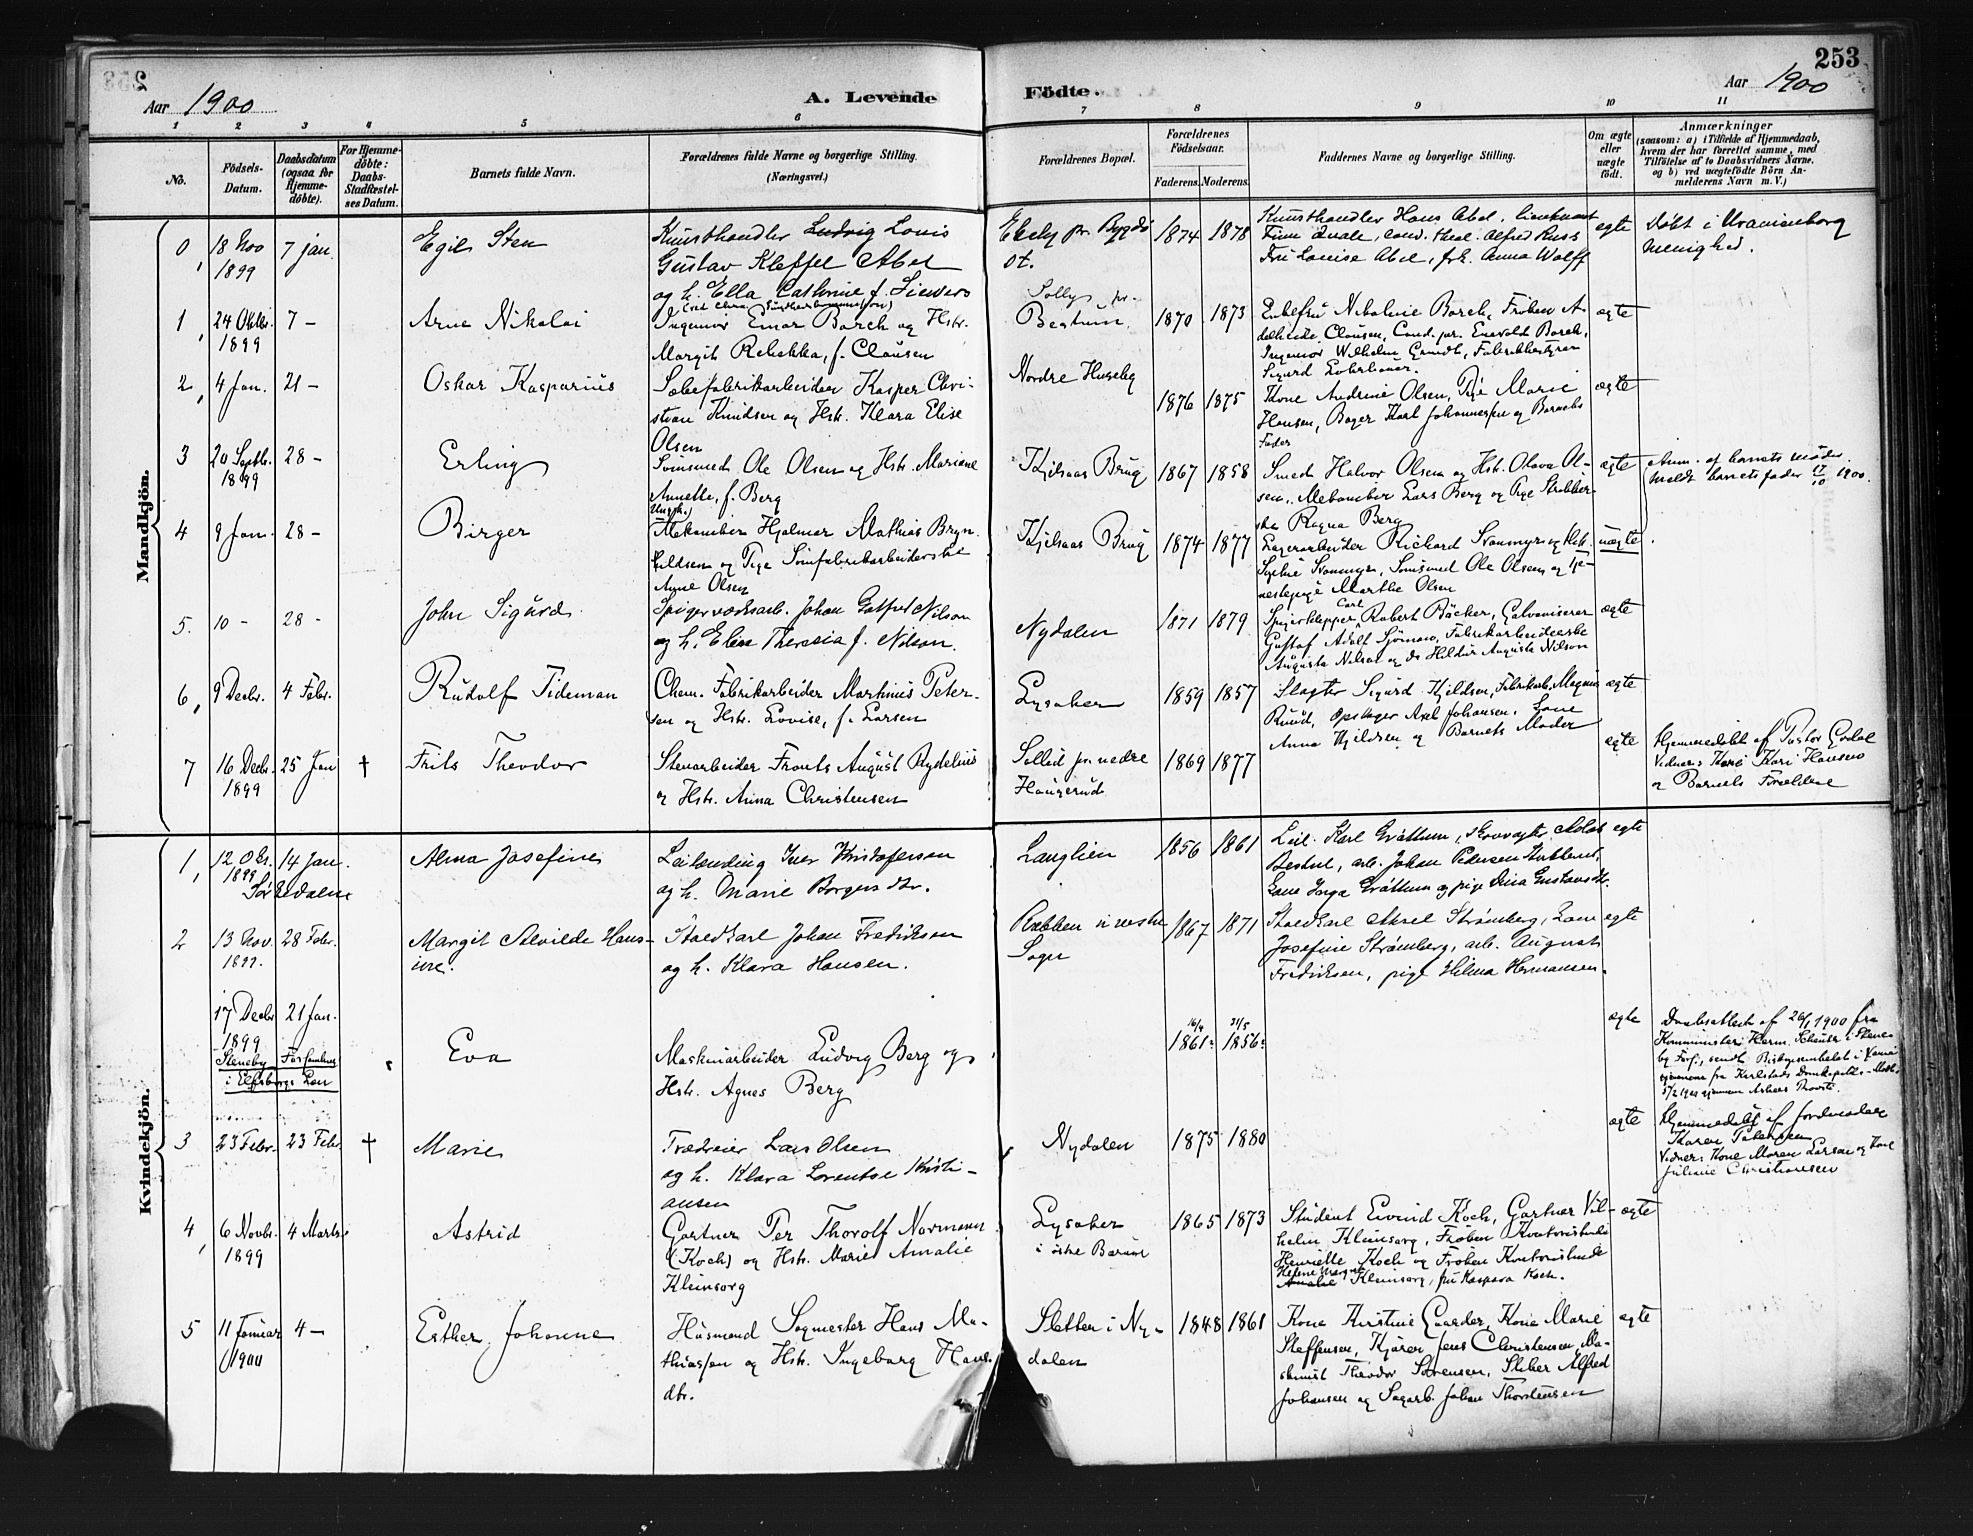 253
Aar 1900
A. Levende Födte.
Aar 1900
1 2 3 4 5 6 7 8 9 10 11
No.
Födsels-Datum.
Daabsdatum (ogsaa for Hjemmedöbte).
For Hjemmedöbte: Daabs-Stadfæstelses Datum.
Barnets fulde Navn.
Forældrenes fulde Navne og borgerlige Stilling. (Næringsvei.)
Forældrenes Bopæl.
Forældrenes Födselsaar.
Faderens. Moderens.
Faddernes Navne og borgerlige Stilling.
Om ægte eller uægte födt.
Anmærkninger
(saasom: a) i Tilfælde af Hjemmedaab, hvem der har forrettet samme, med Tilföielse af to Daabsvidners Navne, og b) ved uægtefödte Börn Anmelderens Navn m. V.)
Mandkjön.
0, 18 Nov 1899 7 jan. Egil Sten
Kunsthandler Ludvig Louis
Gustav Kleffel Abel
og h. Ella Cathrine f. Siewers
Ekely pr. Bygdö
st.
1874 1878
Kunsthandler Hans Abel, lieutnant
Finn Qvale, cand. theol. Alfred Russ
Fru Louise Abel, frk. Anna Wolff
ægte
Döbt i Uranienborg
menighed.
1, 24 Oktbr. 1899 7 - Arne Nikolai
Ingeniør Einar Borch og Hstr.
Margit Rebekka, f. Clausen
Solly pr.
Bestum.
1870 1873
Enkefru Nikoline Borch, Frøken A-
delheide Clausen, Cand. jur. Enevold Borch,
Ingeniør Wilhelm Grundt, Fabrikbestyrer
Sigurd
ægte
2, 4 Jan. 21 - Oskar Kasparius
Sæbefabrikarbeider Kasper Chri-
stian Knudsen og Hstr. Klara Elise
Olsen
Nordre Huseby
1876 1875
Kone Andrine Olsen, Pige Marie
Hansen, Bager Karl Johannesen og Barnets
Fader
ægte
3 20 Septbr. 1899 28 - Erling
Sömsmed Ole Olsen og Hstr. Mariane
Annette, f. Berg
Kjelsaas Brug
1867 1858
Smed Halvor Olsen og Hst. Olava Ol-
sen, Mekaniker Lars Berg og Pige
Ragna Berg
ægte
Anm. af barnets moder.
meldt barnets fader 17/10 1900.
4 9 Jan. 28 - Birger
Ungk.
Mekaniker Hjalmar Mathias Bryn-
hildsen og Pige Sömfabrikarbeiderske
Anne Olsen
Kjelsaas Brug
1874 1877
Lagerarbeider Richard Svanmyr og Hst.
Sophie Svanmyr, Sömsmed Ole Olsen og tje-
nestepige Marthe Olsen
uægte
5. 10 - 28 - John Sigurd
Spigerværksarb. Johan Gotfred Nilson
og h. Elin Theresia f. Nelson.
Nydalen
1871 1879
Spigerklipper Carl Robert Bäcker, Galvaniserer
Gustaf Adolf Sjöman, Fabrikarbeiderske
Augusta Nilson og do Hildur Augusta Nilson
ægte
6, 9 Decbr. 4 Febr. Rudolf Tideman
Chem. Fabrikarbeider Martinus Peter-
sen og Hstr. Lovise, f. Larsen
Lysaker
1859 1857
Slagter Sigurd Kjeldsen, Fabrikarb. Magnus
Ruud, Opslager Axel Johansen, Kone
Anna Kjeldsen og Barnets Moder
ægte
7 16 Decbr. 1899 25 Jan † Frits Theodor
Stenarbeider Frants August Rydelius
og Hstr. Anna Christensen
pr. nedre
Haugerud
1869 1877
ægte
Hjemmedöbt af Pastor Gjødal
Vidner: Kone Kari Hansen
og Barnets Forældre
Kvindekjön.
1, 12 Okt. 1899 14 Jan. Alma Josefine
Sørkedalen
Leilænding Iver Kristofersen
og h. Marie Borgersdtr.
Langlien
1856 1861
Leil. Karl Gråttum, skovvogter Adolf
arb. Johan Pedersen
Kone Inga Gråttum og pige Dina Gustavsdtr.
ægte
2 13 Nov. 1899. 28 Febr. Margit Alvilde Hans-
ine.
Staldkarl Johan Fredriksen
og h. Klara Hansen.
Bakken i vestre
Sogn
1867 1871
Staldkarl Aksel Strömberg, Kone
Josefine Strömberg, arb. August
Fredriksen, pige Hilma Hermansen.
ægte
17 Decbr 1899 21 Jan.
Steneby Församling
i Elfsborgs Län
Eva
Maskinarbeider Ludvig Berg og
Hstr. Agnes Berg
16/4 1861: 31/5 1856:
ægte
Daabsattest af 26/1 1900 fra
Komminister Herm.
3 23 Febr. 23 Febr. † Marie
Trædreier Lars Olsen
og h. Klara Lorentse Kristi-
ansen
Nydalen
1875 1880
ægte
Hjemmedöbt af Jordmoder
Karen Pedersen
Vidner: Kone Maren Larsen og Kone
Juliane Christiansen
4, 6 Novbr. 1899 4 Marts Astrid
Gartner Per Thorolf Normann
(Koch) og Hstr. Marie Amalie
Kleinsorg
Lysaker
i östre Bærum
1865 1873
Student Eivind Koch, Gartner Vil-
helm Kleinsorg, Fröken Kontoristinde
Henriette Koch og Fröken Kontoristinde
Amalie Helene Margrete Kleinsorg, fru Kaspara Koch.
ægte
5 11 Januar 1900 4 - Esther Johanne
Husmand Sagmester Hans Ma-
thiassen og Hstr. Ingeborg Hans-
dtr.
Sletten i Ny-
dalen
1848 1861
Kone Kirstine Gaarder, Kone Marie
Steffensen, Kjörer Jens Christensen, Ma-
skinist Theodor Sörensen, Sliber Alfred
Johansen og Sagarb. Johan Thorstensen
ægte